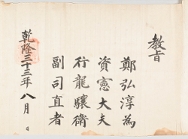 敎旨
鄭弘淳爲
資憲大夫
行龍驤衛
副司直者
乾隆三十三年八月日